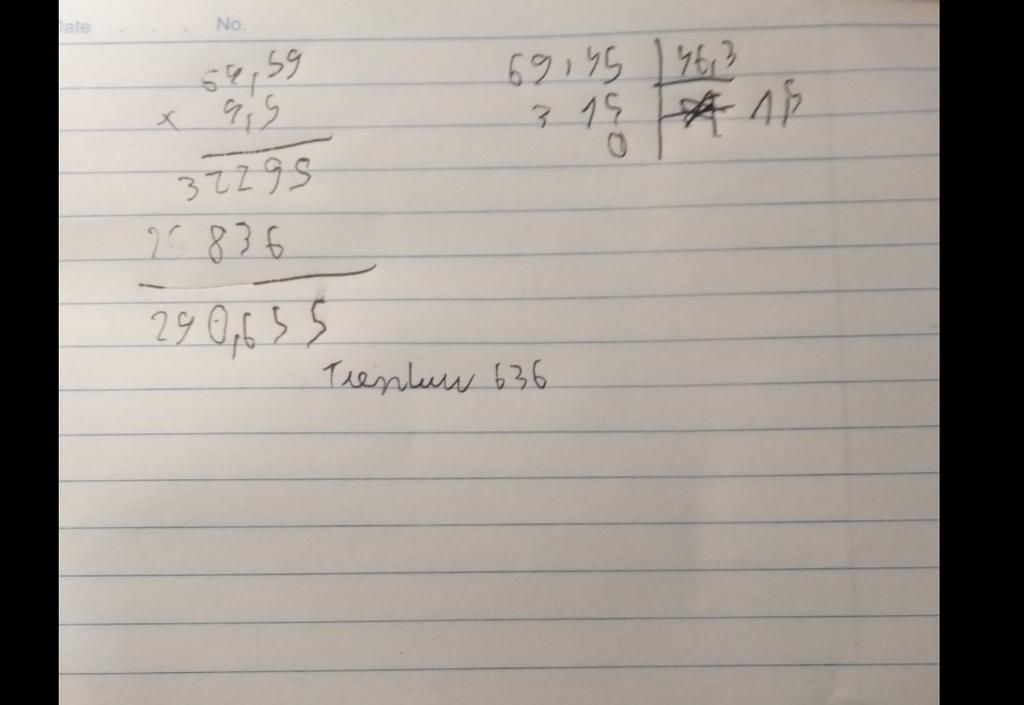 64,59
x 4,5
32295
25 836
290,655
636
69,45 46,3
3 15 1,5
0
Date . . . No.